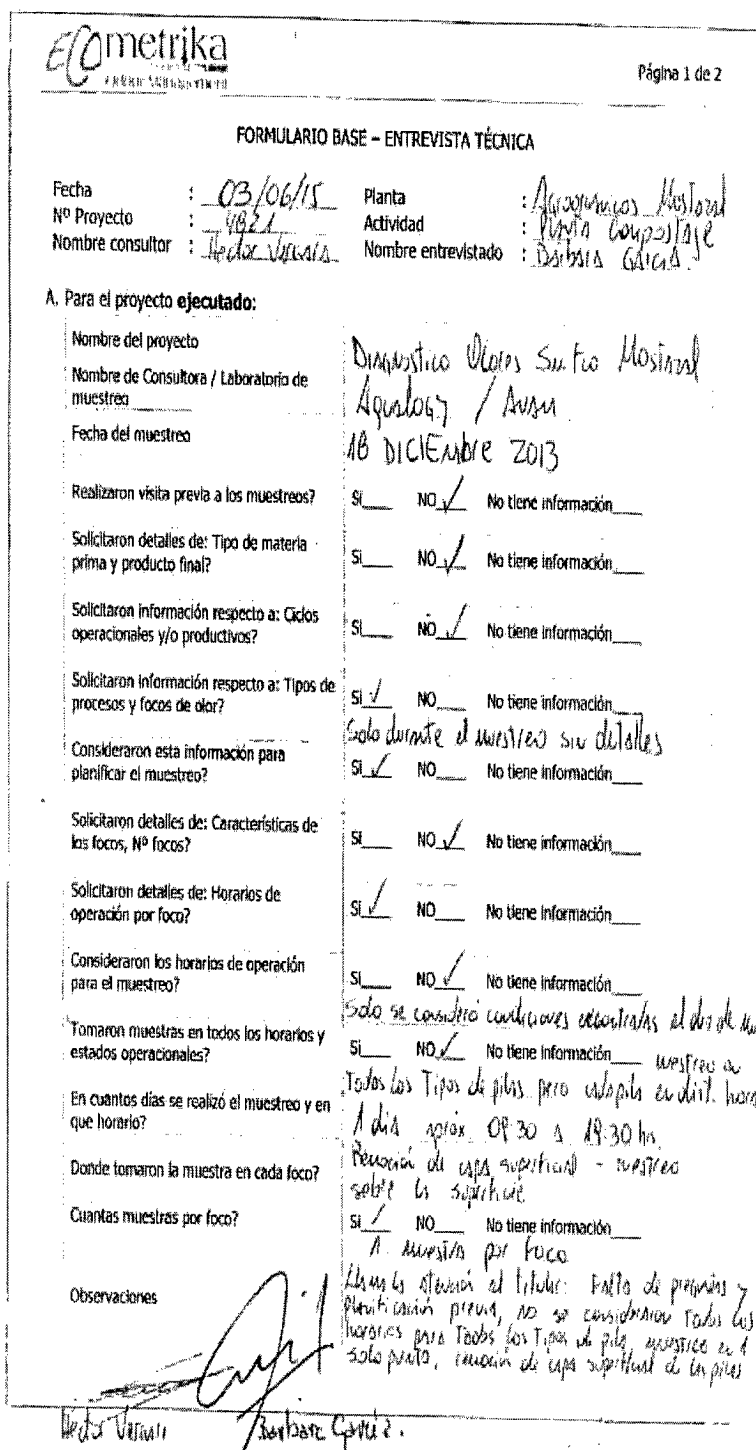 ECOmetrika
Odour Management
Página 1 de 2
FORMULARIO BASE – ENTREVISTA TÉCNICA
Fecha : 03/06/15
Nº Proyecto : 4821
Nombre consultor : Hector
Planta : Agroorgánicos Mostazal
Actividad : Planta Compostaje
Nombre entrevistado : Barbara García.
A. Para el proyecto ejecutado:
Nombre del proyecto Diagnostico Olores Sn. Fco Mostazal
Nombre de Consultora / Laboratorio de
muestreo Aqualogy /
Fecha del muestreo 18 DICIEmbre 2013
Realizaron visita previa a los muestreos? Si___ NO_✓ No tiene información___
Solicitaron detalles de: Tipo de materia
prima y producto final? Si___ NO_✓ No tiene información___
Solicitaron información respecto a: Ciclos
operacionales y/o productivos? Si___ NO_✓ No tiene información___
Solicitaron información respecto a: Tipos de
procesos y focos de olor? Si ✓ NO___ No tiene información___
Solo durante el muestreo sin detalles
Consideraron esta información para
planificar el muestreo? Si_✓ NO___ No tiene información___
Solicitaron detalles de: Características de
los focos, Nº focos? Si___ NO_✓ No tiene información___
Solicitaron detalles de: Horarios de
operación por foco? Si_✓ NO___ No tiene información___
Consideraron los horarios de operación
para el muestreo? Si___ NO_✓ No tiene información___
Solo se consideró condiciones el dia de
Tomaron muestras en todos los horarios y
estados operacionales? Si___ NO_✓ No tiene información___ muestreo
Todos los Tipos de pilas pero cada pila en dist. hora
En cuantos días se realizó el muestreo y en
que horario? 1 dia aprox 09:30 a 19:30 hrs.
Donde tomaron la muestra en cada foco? Remoción de capa superficial - muestreo
sobre la superficie
Cuantas muestras por foco? Si_✓ NO___ No tiene información___
1 muestra por foco
Observaciones Llama la atención al titular: Falta de preguntas y
planificación previa, no se consideraron Todos los
horarios para Todos los Tipos de pila, muestreo en 1
solo punto, remoción de capa superficial de las pilas
Hector
Barbara García.